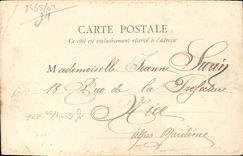 CARTE POSTALE
Ce côté est exclusivement réservé à l'adresse
Mademoiselle Jeanne
18 Rue de la Préfecture
Nice
Alpes Maritimes